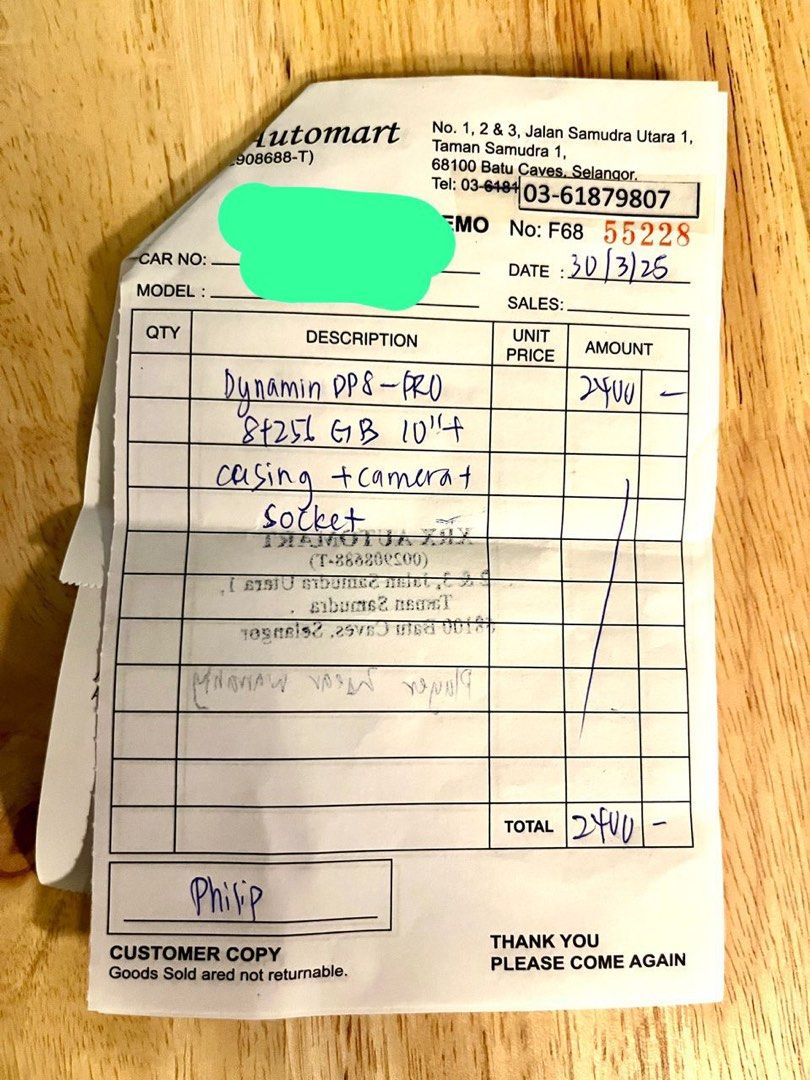 Automart
2908688-T)
No. 1, 2 & 3, Jalan Samudra Utara 1,
Taman Samudra 1,
68100 Batu Caves, Selangor.
Tel: 03-6181 03-61879807
EMO No: F68 55228
CAR NO:
DATE : 30/3/25
MODEL :
SALES:
QTY DESCRIPTION UNIT PRICE AMOUNT
Dynamin DP8-PRO 2400 -
8+256 GB 10"+
casing + camera +
socket
XRX AUTOMART
(002908688-T)
2 & 3, Jalan Samudra Utara 1,
Taman Samudra
68100 Batu Caves, Selangor
Player 2 year warranty
TOTAL 2400 -
Philip
CUSTOMER COPY
Goods Sold ared not returnable.
THANK YOU
PLEASE COME AGAIN